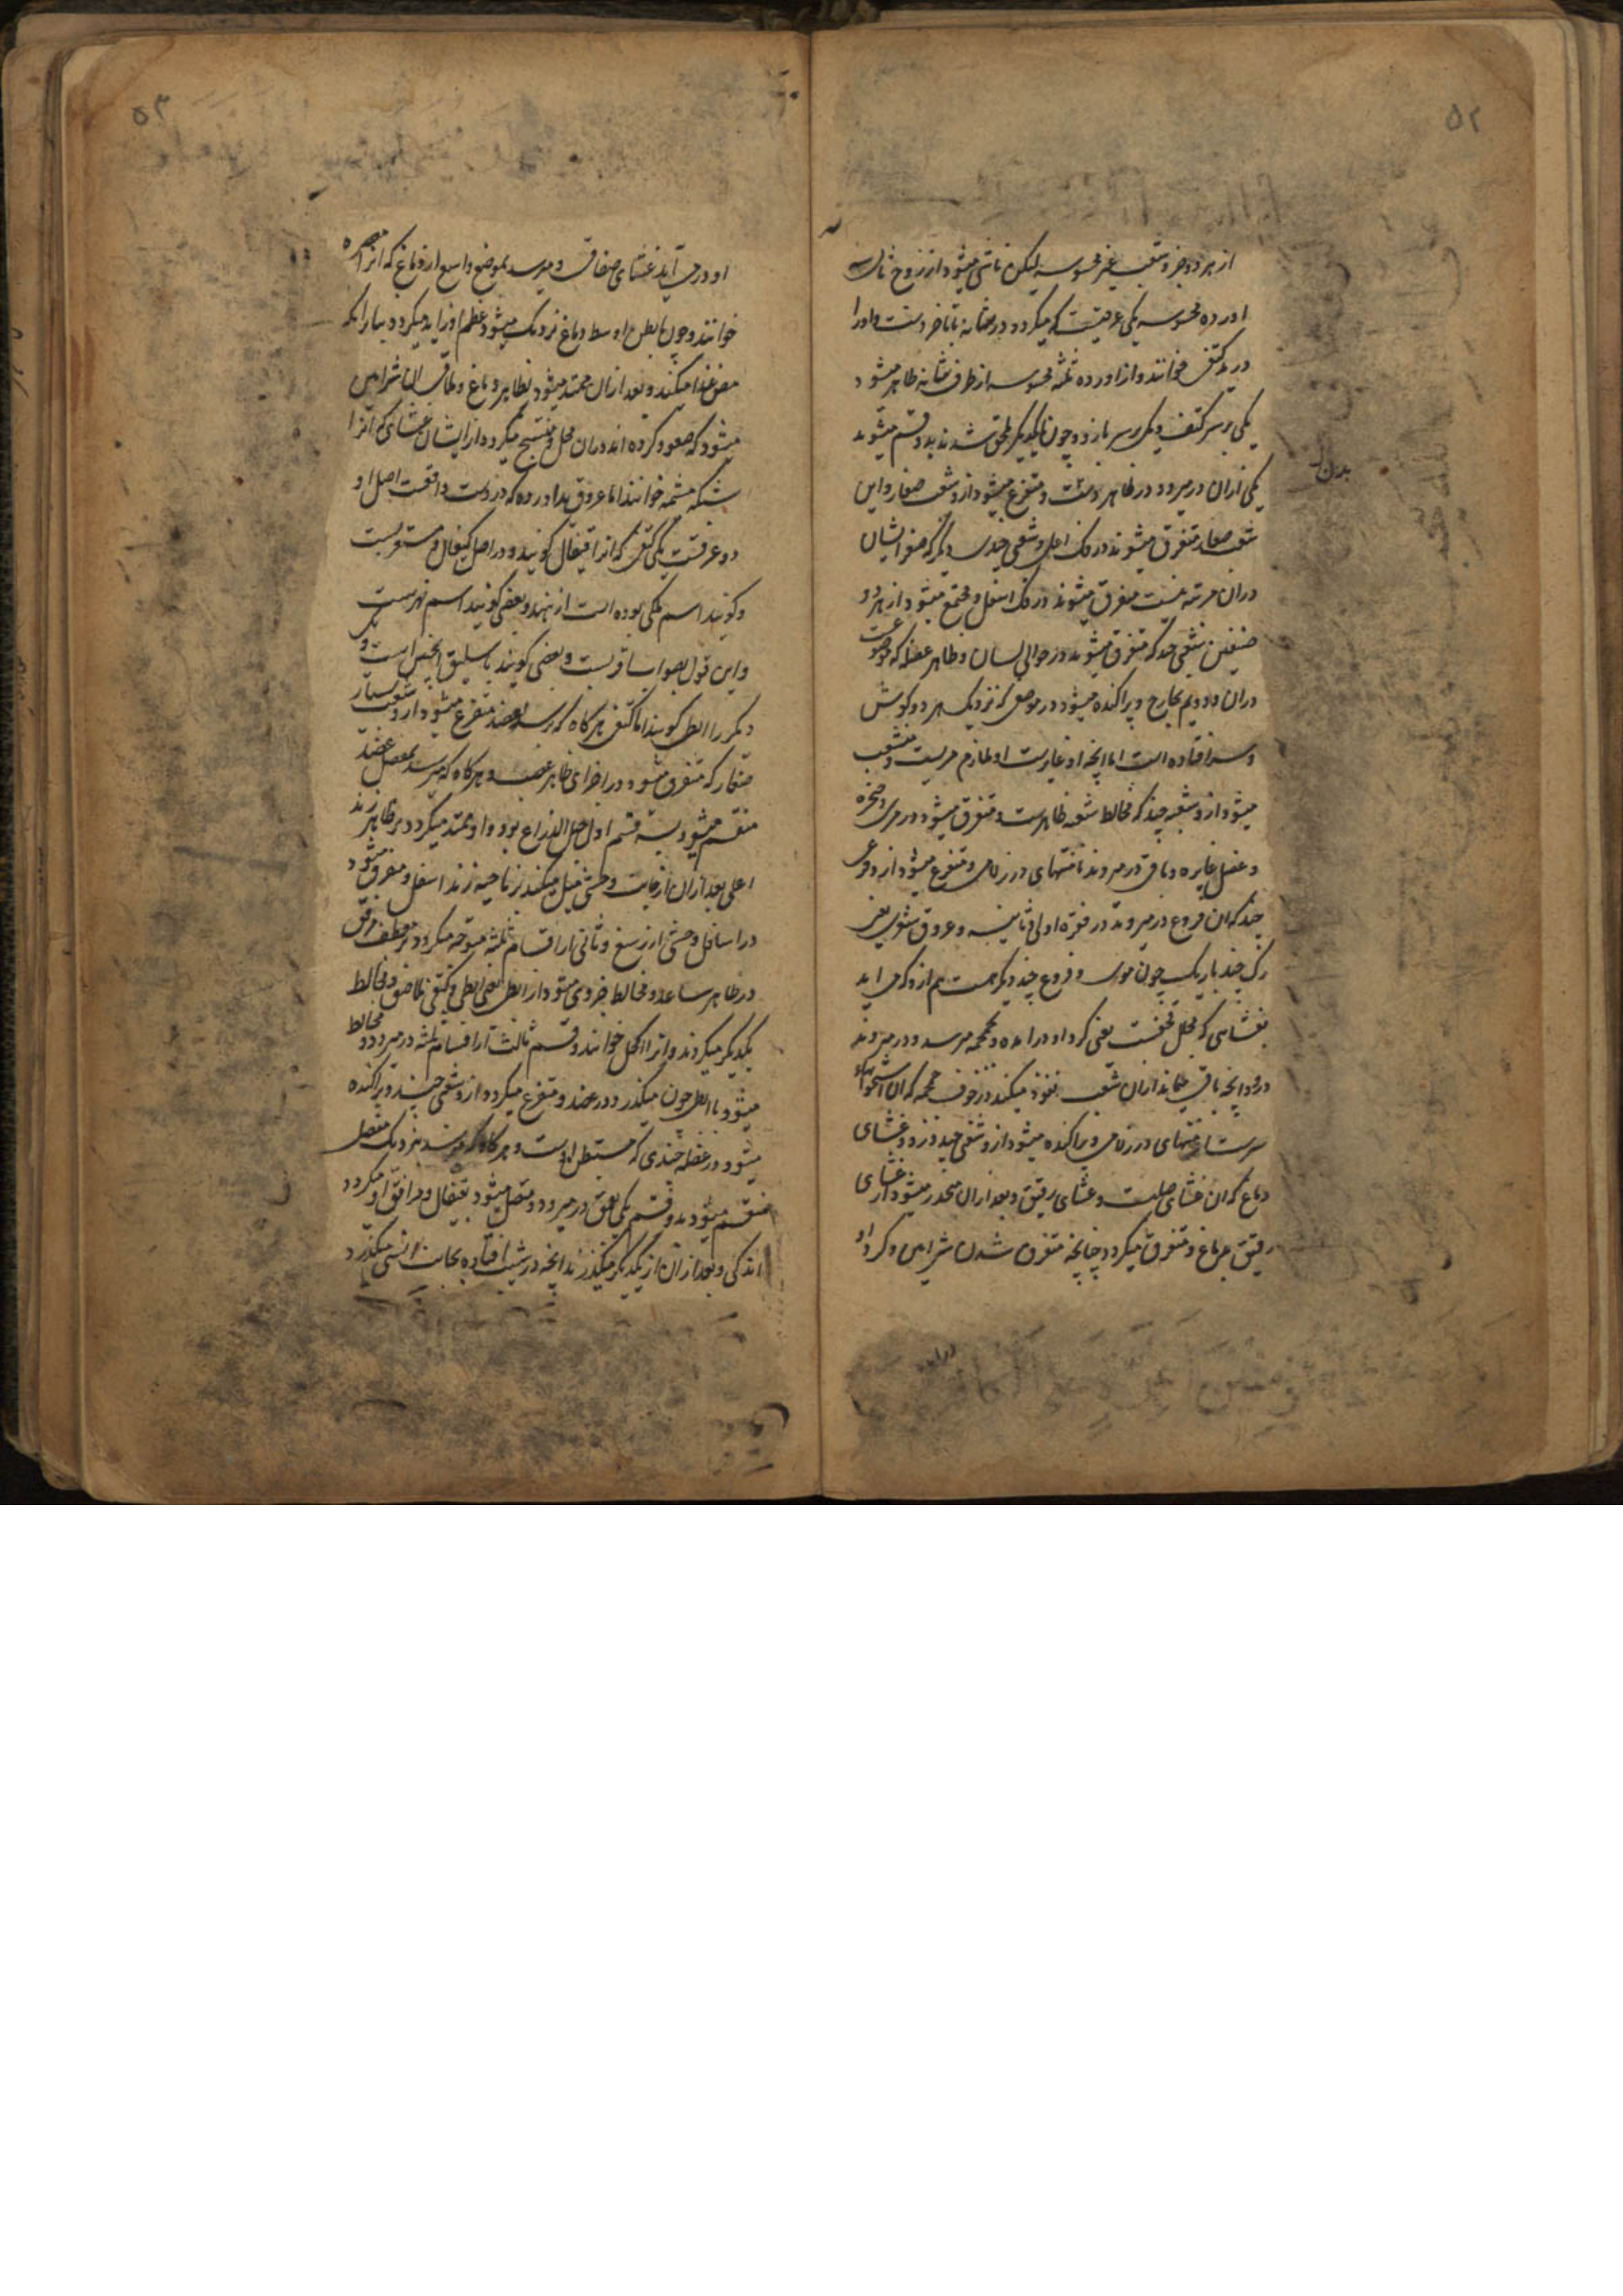 ۵۲
از هر دو جزو شعب غیر محسوسه لیکن ناشی میشود از زوج ثالث
اورده محسوسه یکی عرقیست که میگردد در مثانه تا باخر دست و او را
ورید کتفی میخوانند و از اورده ثلثه محسوسه از طرف مثانه ظاهر میشود
یکی بر سر کتف و یکی بر سر بازو و چون یکدیگر ملحق شدند بدو قسم میشوند
یکی ازان درمیرود در ظاهر و متفرع میشود ازو شعب صغار و این
شعب صغار متفرق میشوند در فک اعلی و شعبی چندی دیگر که صغر ایشان
دران مرتبه نیست متفرق میشوند در فک اسفل و مجتمع میشود از هر دو
صنفین شعبی چند که متفرق میشوند در حوالی لسان و ظاهر عضلهٔ که موضوعست
دران و دویم بخارج و پراکنده میشود در موضعی که نزدیک هر دو گوش
و سر افتاده است اما آنچه او غایرست او ملازم مریست و منشعب
میشود ازو شعبه چند که مخالط شعبه ظاهرست و متفرق میشود در مری و حنجره
و عضل غایره و باقی درمیروند تا منتهای درز لامی و متفرع میشود ازو فروعی
چند که ان فروع درمیروند در فقره اولی و ثانیه و عروق شعری یعنی
رگی چند باریک چون موی و فروع چند دیگر هست هم ازو که می آید
بغشایی که مجلل قحفست یعنی گرد او درآمده و بجمجمه میرسد و درمیروند
درو و آنچه باقی میماند ازان شعب نفوذ میکند در جوف جمجمه که ان استخوانهای
سرست تا منتهای درز لامی و پراکنده میشود ازو شعبی چند در دو غشای
دماغ که ان غشای صلبست و غشای رقیق و بعد ازان منحدر میشود از غشای
رقیق بدماغ و متفرق میگردد چنانچه متفرق شدن شرایین و گرد او
بدن
دراید
۵۳
او درمی آید غشای صفاقی و میرسد بموضع واسع از دماغ که انرا معصره
خوانند و چون ببطن اوسط دماغ نزدیک میشود عظم او زاید میگردد بسیار انکه
مص غذا میکند و بعد ازان ممتد میشود بظاهر دماغ و ملاقی ان شرایین
میشود که صعود کرده اند دران محل و منتسج میگردد از ایشان غشای که انرا
شبکه مشیمه خوانند اما عروق ید اورده که در دست واقعست اصل او
دو عرقست یکی کتفی که انرا قیفال گویند و در اصل کیفال و مستعربست
و گویند اسم ملکی بوده است از هند و بعضی گویند اسم نهریست
و این قول بصواب اقربست و بعضی گویند باسلیق اینچنین است و یک
دیگر را ابطی گویند اما کتفی هرگاه که رسد بعضد متفرع میشود ازو شعب بسیار
صغار که متفرق شود در اجزای ظاهر عضد و هرگاه که میرسد بمفصل عضد
منقسم میشود بسه قسم اول حبل الذراع بود و او ممتد میگردد بر ظاهر زند
اعلی بعد ازان از جانب وحشی میل میکند بر ناحیه زند اسفل و متفرق میشود
در اسافل وحشی از رسغ و ثانی از اقسام ثلثه متوجه میگردد بر معطف مرفق
در ظاهر ساعد و مخالط جزوی میشود از ابطی یعنی ابطی و کتفی ملاصق و مخالط
یکدیگر میگردند و انرا اکحل خوانند و قسم ثالث از اقسام ثلثه درمیرود و مخالط
میشود با ابطی چون میگذرد در عضد و متفرع میگردد ازو شعبی چند و پراکنده
میشود در عضله چندی که مستبطن اوست و هرگاه که میرسد بنزدیک مفصل
منقسم میشود بدو قسم یکی بعمق درمیرود و متصل میشود بقیفال و مرافق او میگردد
اندکی و بعد ازان از یکدیگر میگذرند آنچه در شیب افتاده بجانب انسی میگذرد